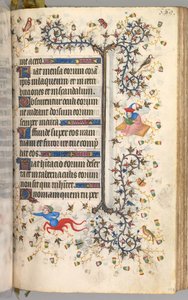 me aceto.
Fiat mensa eorum corã
ipsis in laqueum et in retri
butiones et in scandalum.
Obscurentur oculi eorum
ne uideant et dorsum eorum
semper incurua
Effunde super eos iram tu
am et furor ire tue comp
hendat eos
Fiat habitatio eorum deser
ta et in tabernaculis eorum
non sit qui inhabitet
Quoniam quem tu per